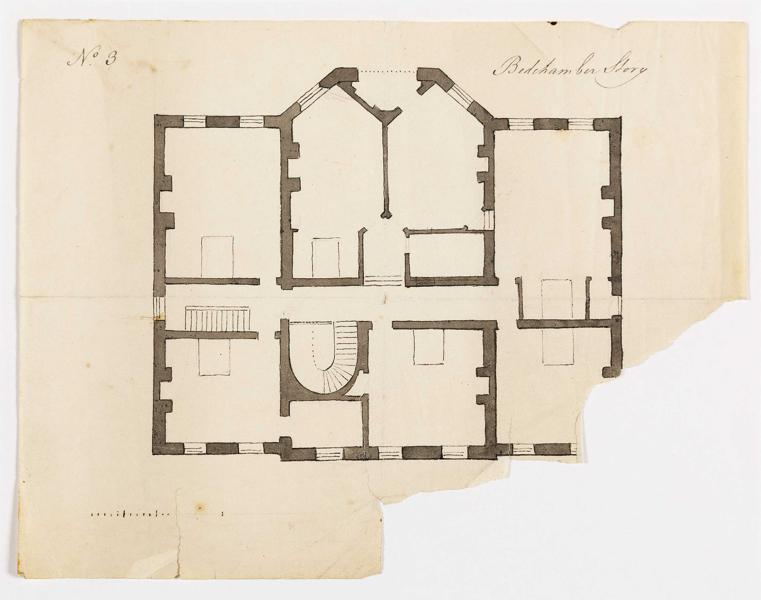 Nº 3
Bedchamber Story